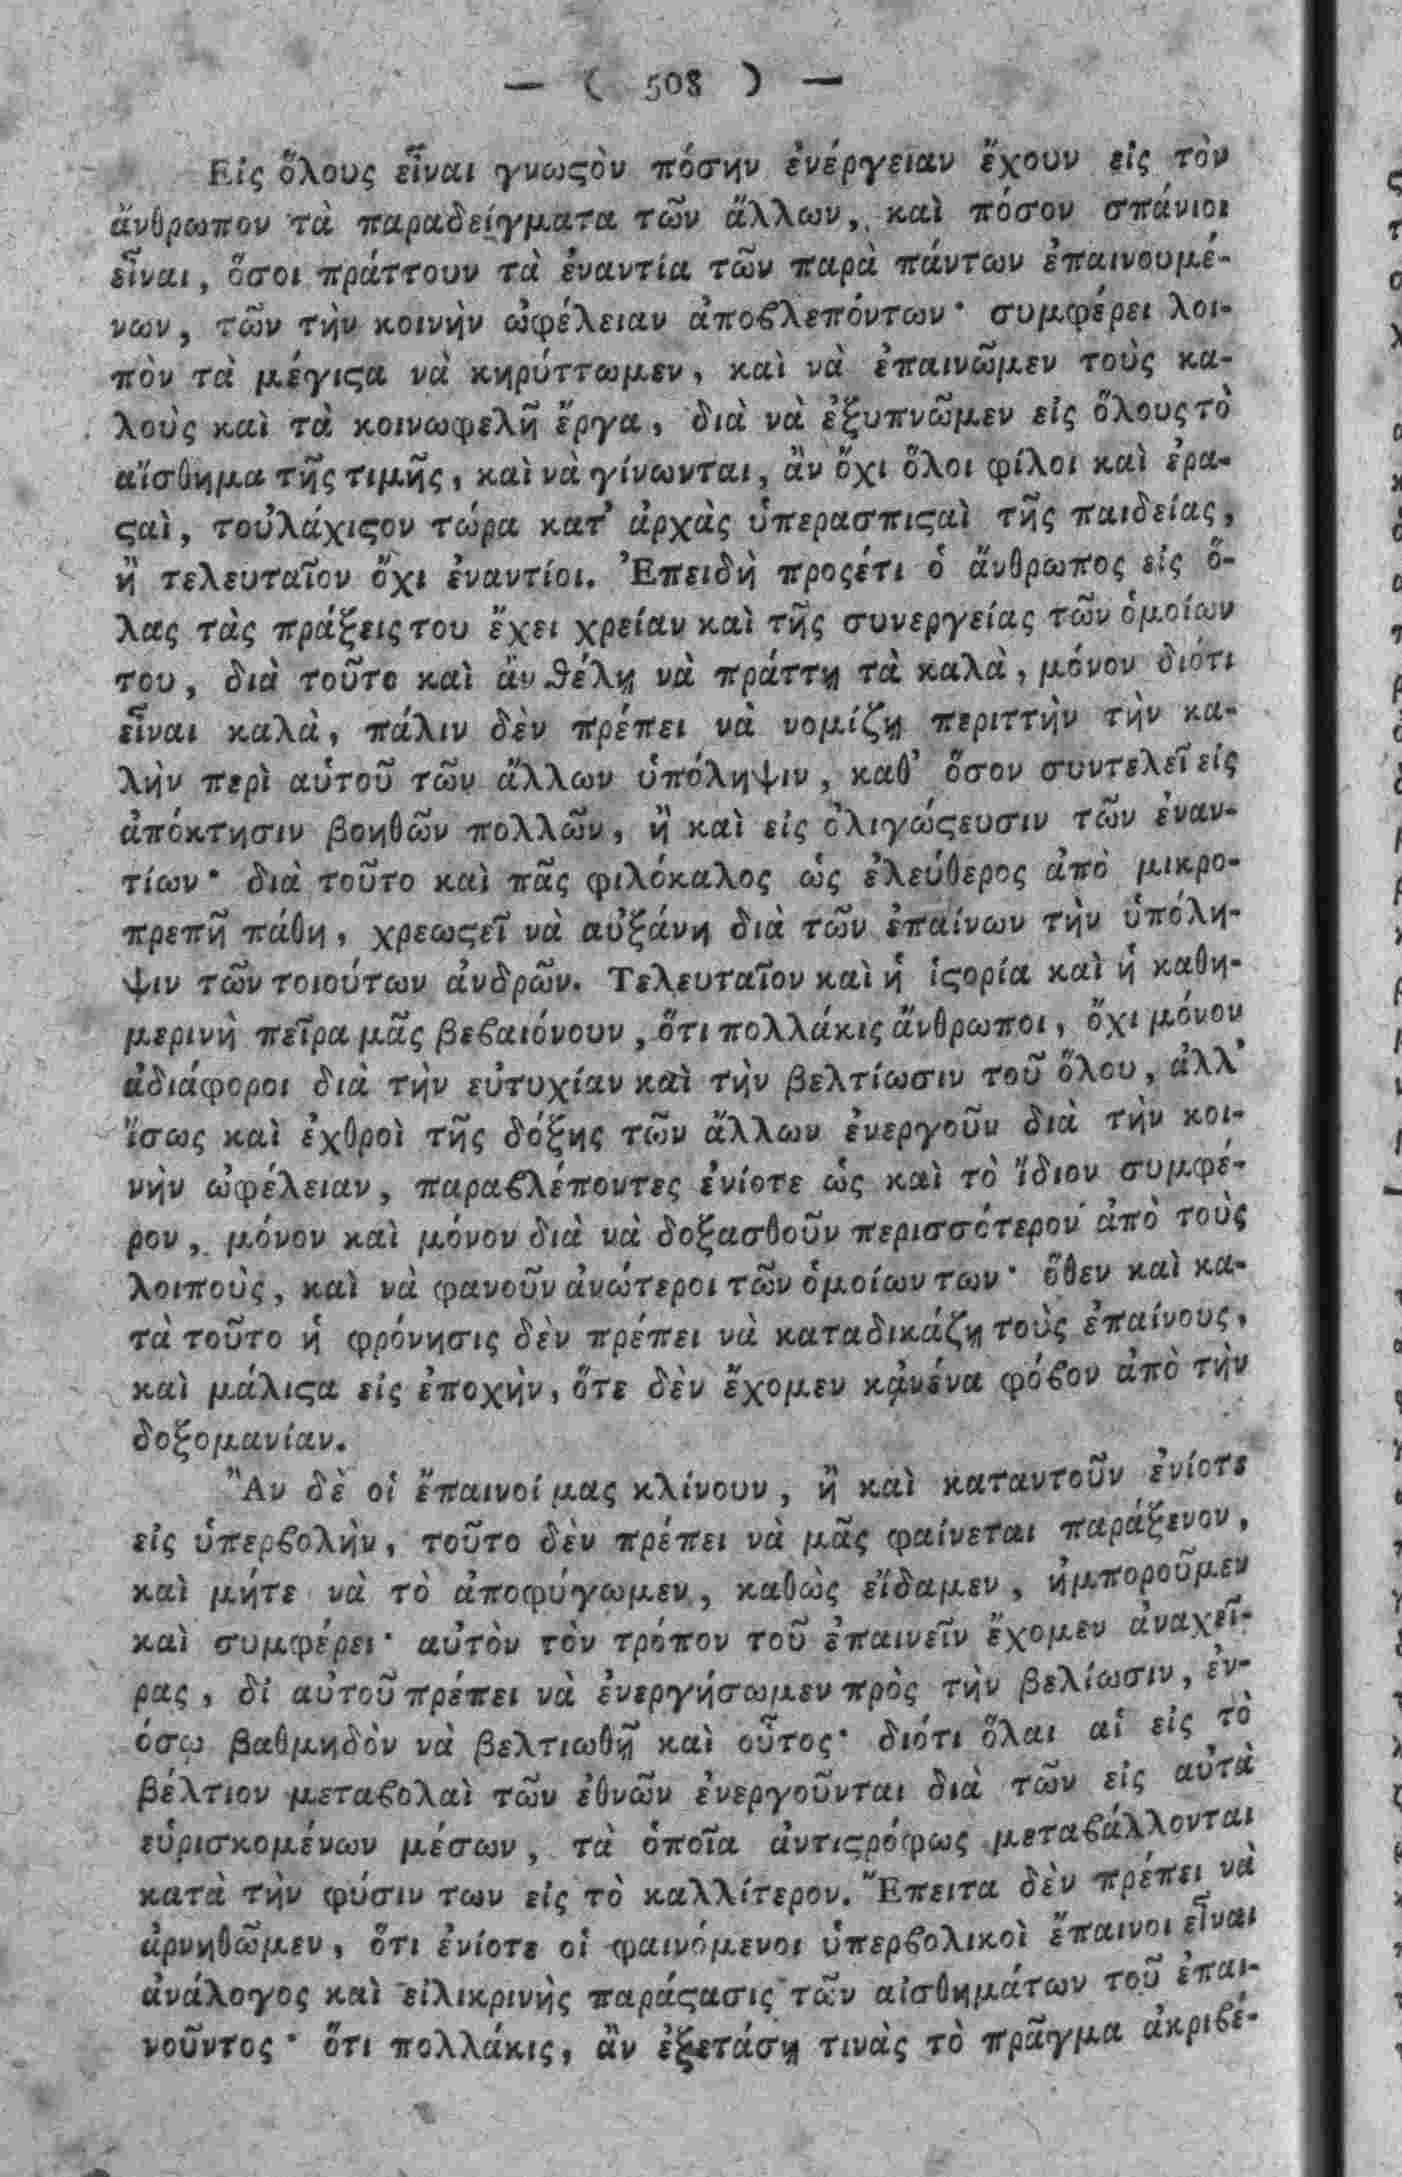 — ( 508 ) —
Εἰς ὅλους εἶναι γνωςὸν πόσην ἐνέργειαν ἔχουν εἰς τὸν
ἄνθρωπον τὰ παραδείγματα τῶν ἄλλων, καὶ πόσον σπάνιοι
εἶναι, ὅσοι πράττουν τὰ ἐναντία τῶν παρὰ πάντων ἐπαινουμέ-
νων, τῶν τὴν κοινὴν ὠφέλειαν ἀποϐλεπόντων· συμφέρει λοι-
πὸν τὰ μέγιςα νὰ κηρύττωμεν, καὶ νὰ ἐπαινῶμεν τοὺς κα-
λοὺς καὶ τὰ κοινωφελῆ ἔργα, διὰ νὰ ἐξυπνῶμεν εἰς ὅλους τὸ
αἴσθημα τῆς τιμῆς, καὶ νὰ γίνωνται, ἂν ὄχι ὅλοι φίλοι καὶ ἐρα-
ςαὶ, τοὐλάχιςον τώρα κατ' ἀρχὰς ὑπερασπιςαὶ τῆς παιδείας,
ἢ τελευταῖον ὄχι ἐναντίοι. Ἐπειδὴ προςέτι ὁ ἄνθρωπος εἰς ὅ-
λας τὰς πράξεις του ἔχει χρείαν καὶ τῆς συνεργείας τῶν ὁμοίων
του, διὰ τοῦτο καὶ ἂν ϑέλῃ νὰ πράττῃ τὰ καλὰ, μόνον διότι
εἶναι καλὰ, πάλιν δὲν πρέπει νὰ νομίζῃ περιττὴν τὴν κα-
λὴν περὶ αὑτοῦ τῶν ἄλλων ὑπόληψιν, καθ' ὅσον συντελεῖ εἰς
ἀπόκτησιν βοηθῶν πολλῶν, ἢ καὶ εἰς ὀλιγώςευσιν τῶν ἐναν-
τίων· διὰ τοῦτο καὶ πᾶς φιλόκαλος ὡς ἐλεύθερος ἀπὸ μικρο-
πρεπῆ πάθη, χρεωςεῖ νὰ αὐξάνῃ διὰ τῶν ἐπαίνων τὴν ὑπόλη-
ψιν τῶν τοιούτων ἀνδρῶν. Τελευταῖον καὶ ἡ ἱςορία καὶ ἡ καθη-
μερινὴ πεῖρα μᾶς βεϐαιόνουν, ὅτι πολλάκις ἄνθρωποι, ὄχι μόνον
ἀδιάφοροι διὰ τὴν εὐτυχίαν καὶ τὴν βελτίωσιν τοῦ ὅλου, ἀλλ'
ἴσως καὶ ἐχθροὶ τῆς δόξης τῶν ἄλλων ἐνεργοῦν διὰ τὴν κοι-
νὴν ὠφέλειαν, παραϐλέποντες ἐνίοτε ὡς καὶ τὸ ἴδιον συμφέ-
ρον, μόνον καὶ μόνον διὰ νὰ δοξασθοῦν περισσότερον ἀπὸ τοὺς
λοιποὺς, καὶ νὰ φανοῦν ἀνώτεροι τῶν ὁμοίων των· ὅθεν καὶ κα-
τὰ τοῦτο ἡ φρόνησις δὲν πρέπει νὰ καταδικάζῃ τοὺς ἐπαίνους,
καὶ μάλιςα εἰς ἐποχὴν, ὅτε δὲν ἔχομεν κᾀνένα φόϐον ἀπὸ τὴν
δοξομανίαν.
Ἂν δὲ οἱ ἔπαινοί μας κλίνουν, ἢ καὶ καταντοῦν ἐνίοτε
εἰς ὑπερϐολὴν, τοῦτο δὲν πρέπει νὰ μᾶς φαίνεται παράξενον,
καὶ μήτε νὰ τὸ ἀποφύγωμεν, καθὼς εἴδαμεν, ἠμποροῦμεν
καὶ συμφέρει· αὐτὸν τὸν τρόπον τοῦ ἐπαινεῖν ἔχομεν ἀναχεῖ-
ρας, δἰ αὐτοῦ πρέπει νὰ ἐνεργήσωμεν πρὸς τὴν βελίωσιν, ἐν-
όσῳ βαθμηδὸν νὰ βελτιωθῇ καὶ οὗτος· διότι ὅλαι αἱ εἰς τὸ
βέλτιον μεταϐολαὶ τῶν ἐθνῶν ἐνεργοῦνται διὰ τῶν εἰς αὐτὰ
εὑρισκομένων μέσων, τὰ ὁποῖα ἀντιςρόφως μεταϐάλλονται
κατὰ τὴν φύσιν των εἰς τὸ καλλίτερον. Ἔπειτα δὲν πρέπει νὰ
ἀρνηθῶμεν, ὅτι ἐνίοτε οἱ φαινόμενοι ὑπερϐολικοὶ ἔπαινοι εἶναι
ἀνάλογος καὶ εἰλικρινὴς παράςασις τῶν αἰσθημάτων τοῦ ἐπαι-
νοῦντος· ὅτι πολλάκις, ἂν ἐξετάσῃ τινὰς τὸ πρᾶγμα ἀκριϐέ-